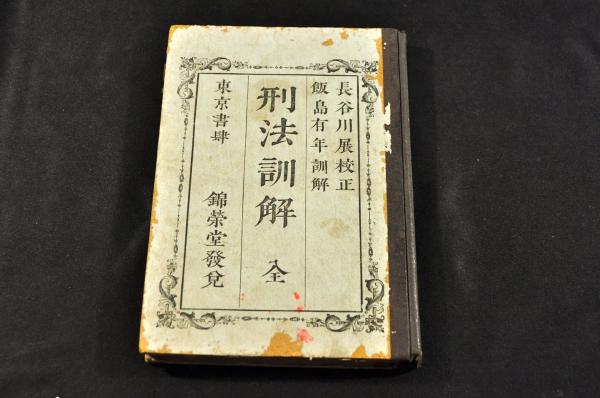 長谷川展校正
飯島有年訓解
刑法訓解 全
東京書肆 錦榮堂發兌